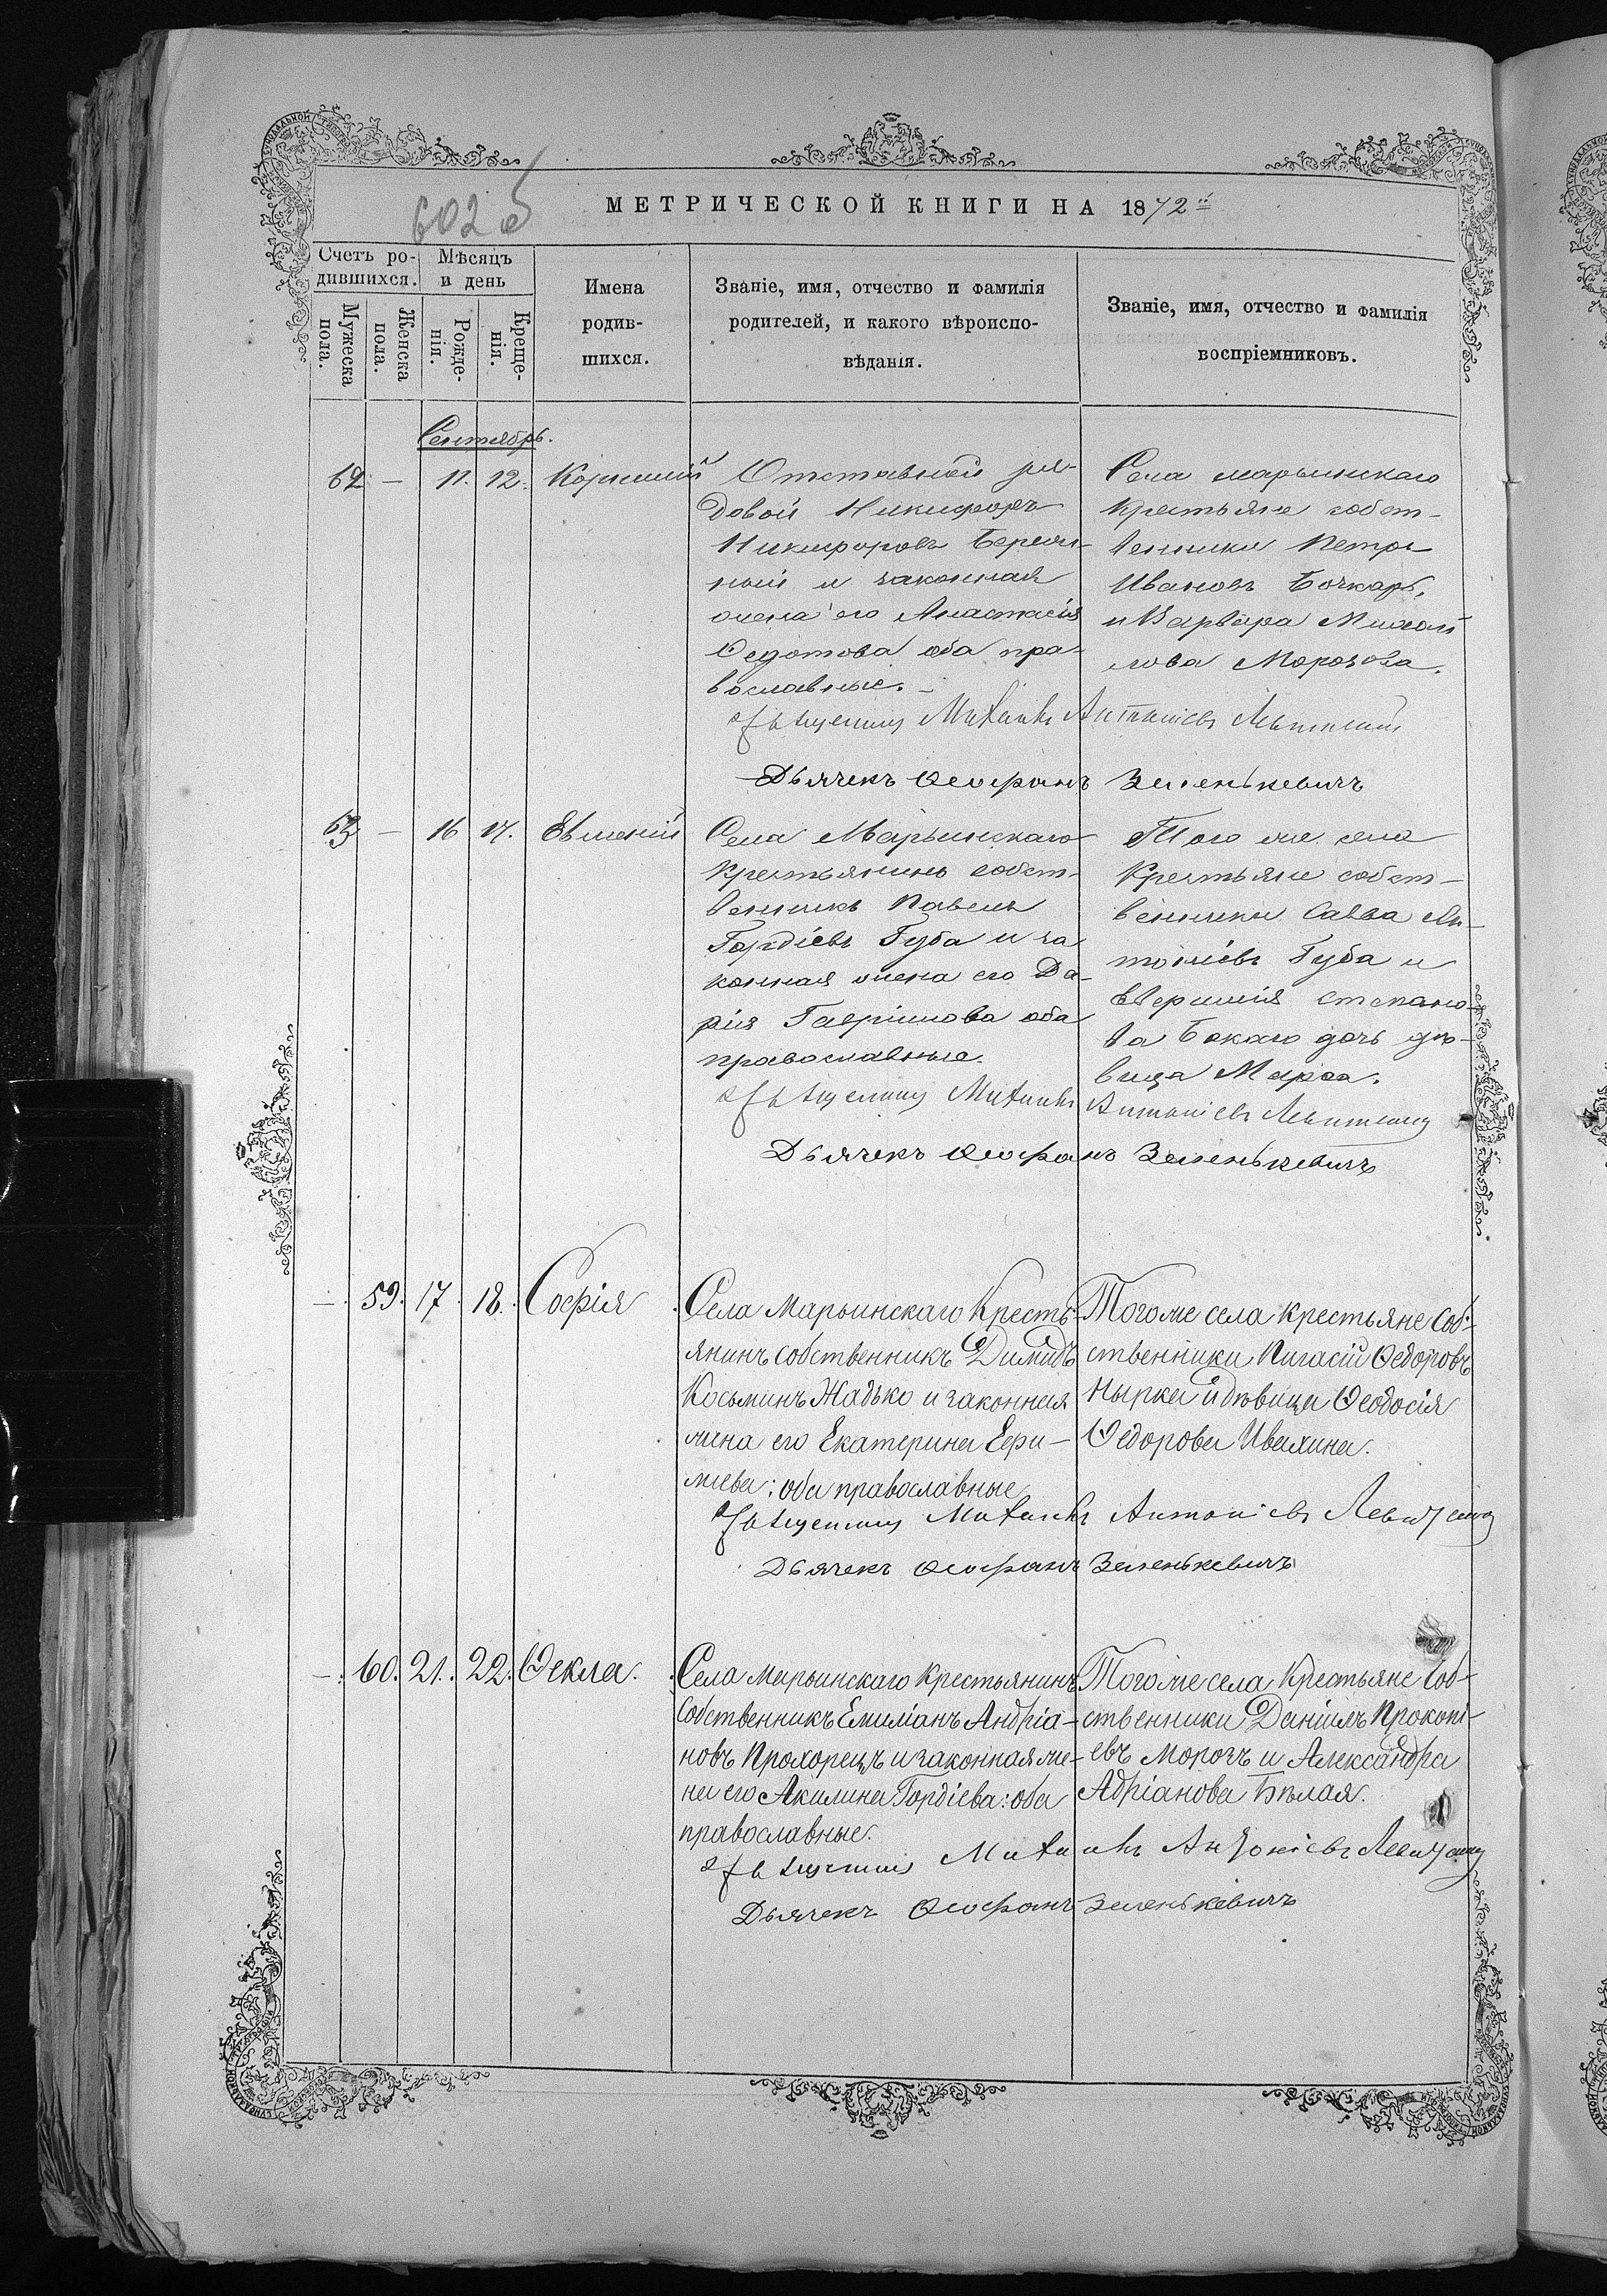 602 об
МЕТРИЧЕСКОЙ КНИГИ НА 1872й
Счетъ ро-
дившихся.
Мужеска
пола.
Женска
пола.
Мѣсяцъ
и день
Рожде-
нія.
Креще-
нія.
Имена
родив-
шихся.
Званіе, имя, отчество и фамилія
родителей, и какого вѣроиспо-
вѣданія.
Званіе, имя, отчество и фамилія
воспріемниковъ.
Сентябрь.
62 — 11. 12. Корнилій
Отставной ря-
довой Никифоръ
Никифоровъ
ный и законная
жена его Анастасія
Федотова оба пра-
вославные. —
Села Марьинскаго
крестьяне собст-
венники Петръ
Ивановъ Бочкарь,
и Варвара Михай
лова Морозова.
Священникъ Михаилъ Антоніевъ
Дьячекъ Ѳеофанъ Зеленькевичъ
63 — 16 17. Евменій
Села Марьинскаго
крестьянинъ собст-
венникъ Павелъ
Гордіевъ Губа и за
конная жена его Да-
рія Гавріилова оба
православные.
Того же села
крестьяне собст-
венники Савва Ан-
тоніевъ Губа и
Степано-
ва дочь дѣ-
вица
Священникъ Михаилъ Антоніевъ
Дьячекъ Ѳеофанъ Зеленькевичъ
— 59. 17 18. Софія
Села Марьинскаго Кресть-
янинъ собственникъ Димидъ
Косьминъ Жадько и законная
жена его Екатерина Ефи-
мiева; оба православные
Тогоже села крестьяне соб-
ственники Пигасій Ѳедоровъ
Нырка и дѣвица Ѳеодосія
Ѳедорова Ивахина.
Священникъ Михаилъ Антоніевъ
Дьячекъ Ѳеофанъ Зеленькевичъ
— 60. 21. 22. Ѳекла.
Села Марьинскаго крестьянинъ
Собственникъ Емиліанъ Андріа-
новъ Прохорецъ и законная же-
на его Акилина Гордіева: оба
православные.
Тогоже села Крестьяне Соб-
ственники Даніилъ Прокопі-
евъ Морозъ и Александра
Адріанова Бѣлая.
Священникъ Михаилъ Антоніевъ
Дьячекъ Ѳеофанъ Зеленькевичъ